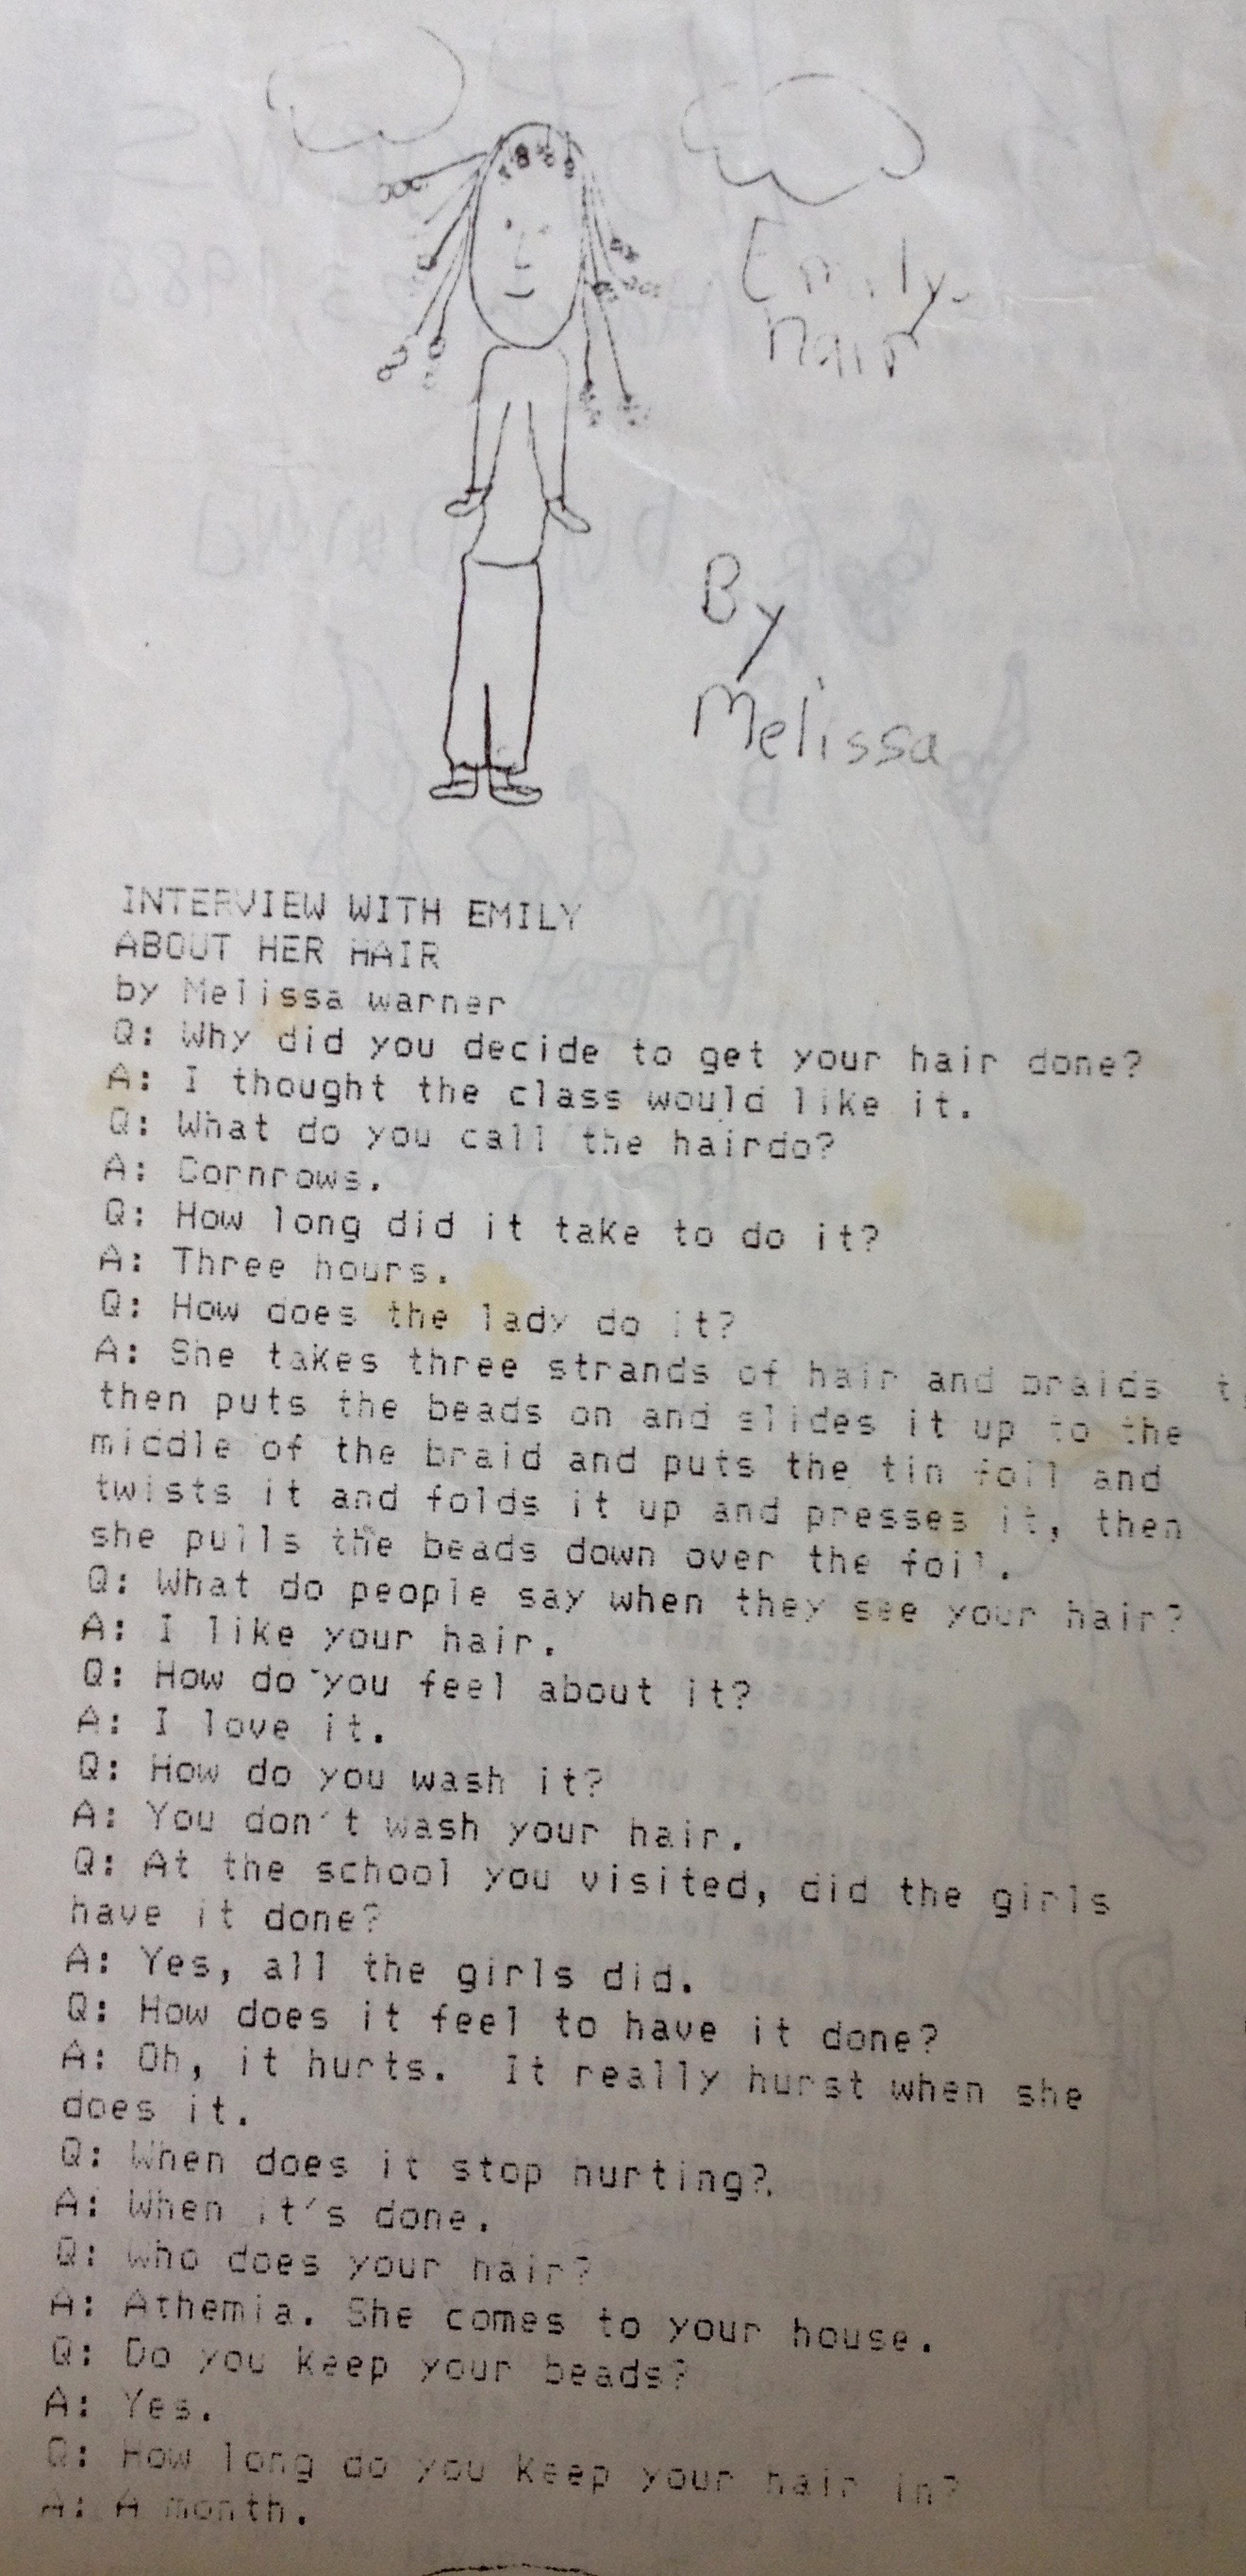 Emily
hair
By
Melissa
INTERVIEW WITH EMILY
ABOUT HER HAIR
by Melissa warner
Q: Why did you decide to get your hair done?
A: I thought the class would like it.
Q: What do you call the hairdo?
A: Cornrows.
Q: How long did it take to do it?
A: Three hours.
Q: How does the lady do it?
A: She takes three strands of hair and braids
then puts the beads on and slides it up to the
middle of the braid and puts the tin foil and
twists it and folds it up and presses it, then
she pulls the beads down over the foil.
Q: What do people say when they see your hair?
A: I like your hair.
Q: How do you feel about it?
A: I love it.
Q: How do you wash it?
A: You don't wash your hair.
Q: At the school you visited, did the girls
have it done?
A: Yes, all the girls did.
Q: How does it feel to have it done?
A: Oh, it hurts. It really hurst when she
does it.
Q: When does it stop hurting?
A: When it's done.
Q: who does your hair?
A: Athemia. She comes to your house.
Q: Do you keep your beads?
A: Yes.
Q: How long do you keep your hair in?
A: A month.